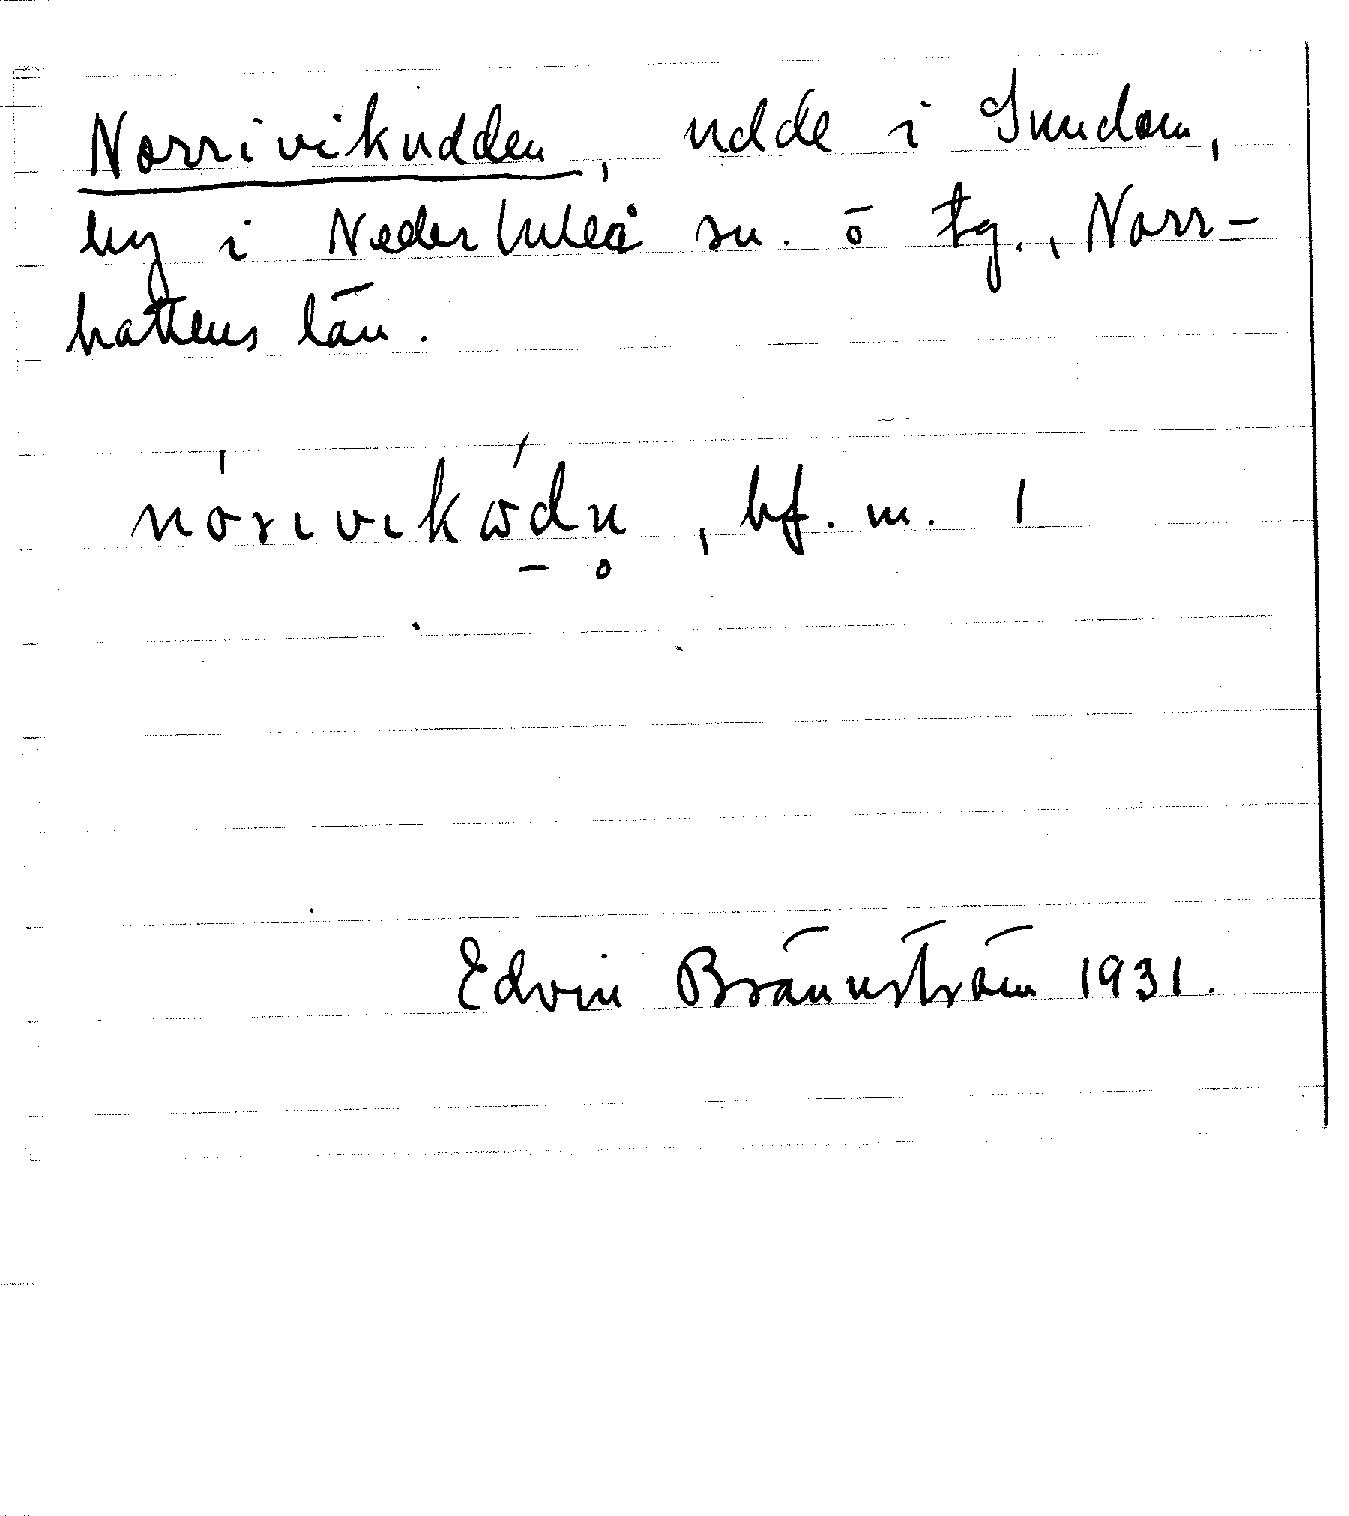 Norrivikudden, udde i Smedom,
by i Nederluleå sn. o tg., Norr-
bottens län.
nórivikω̂dn̥, bf. m. 1
Edvin Brännström 1931.